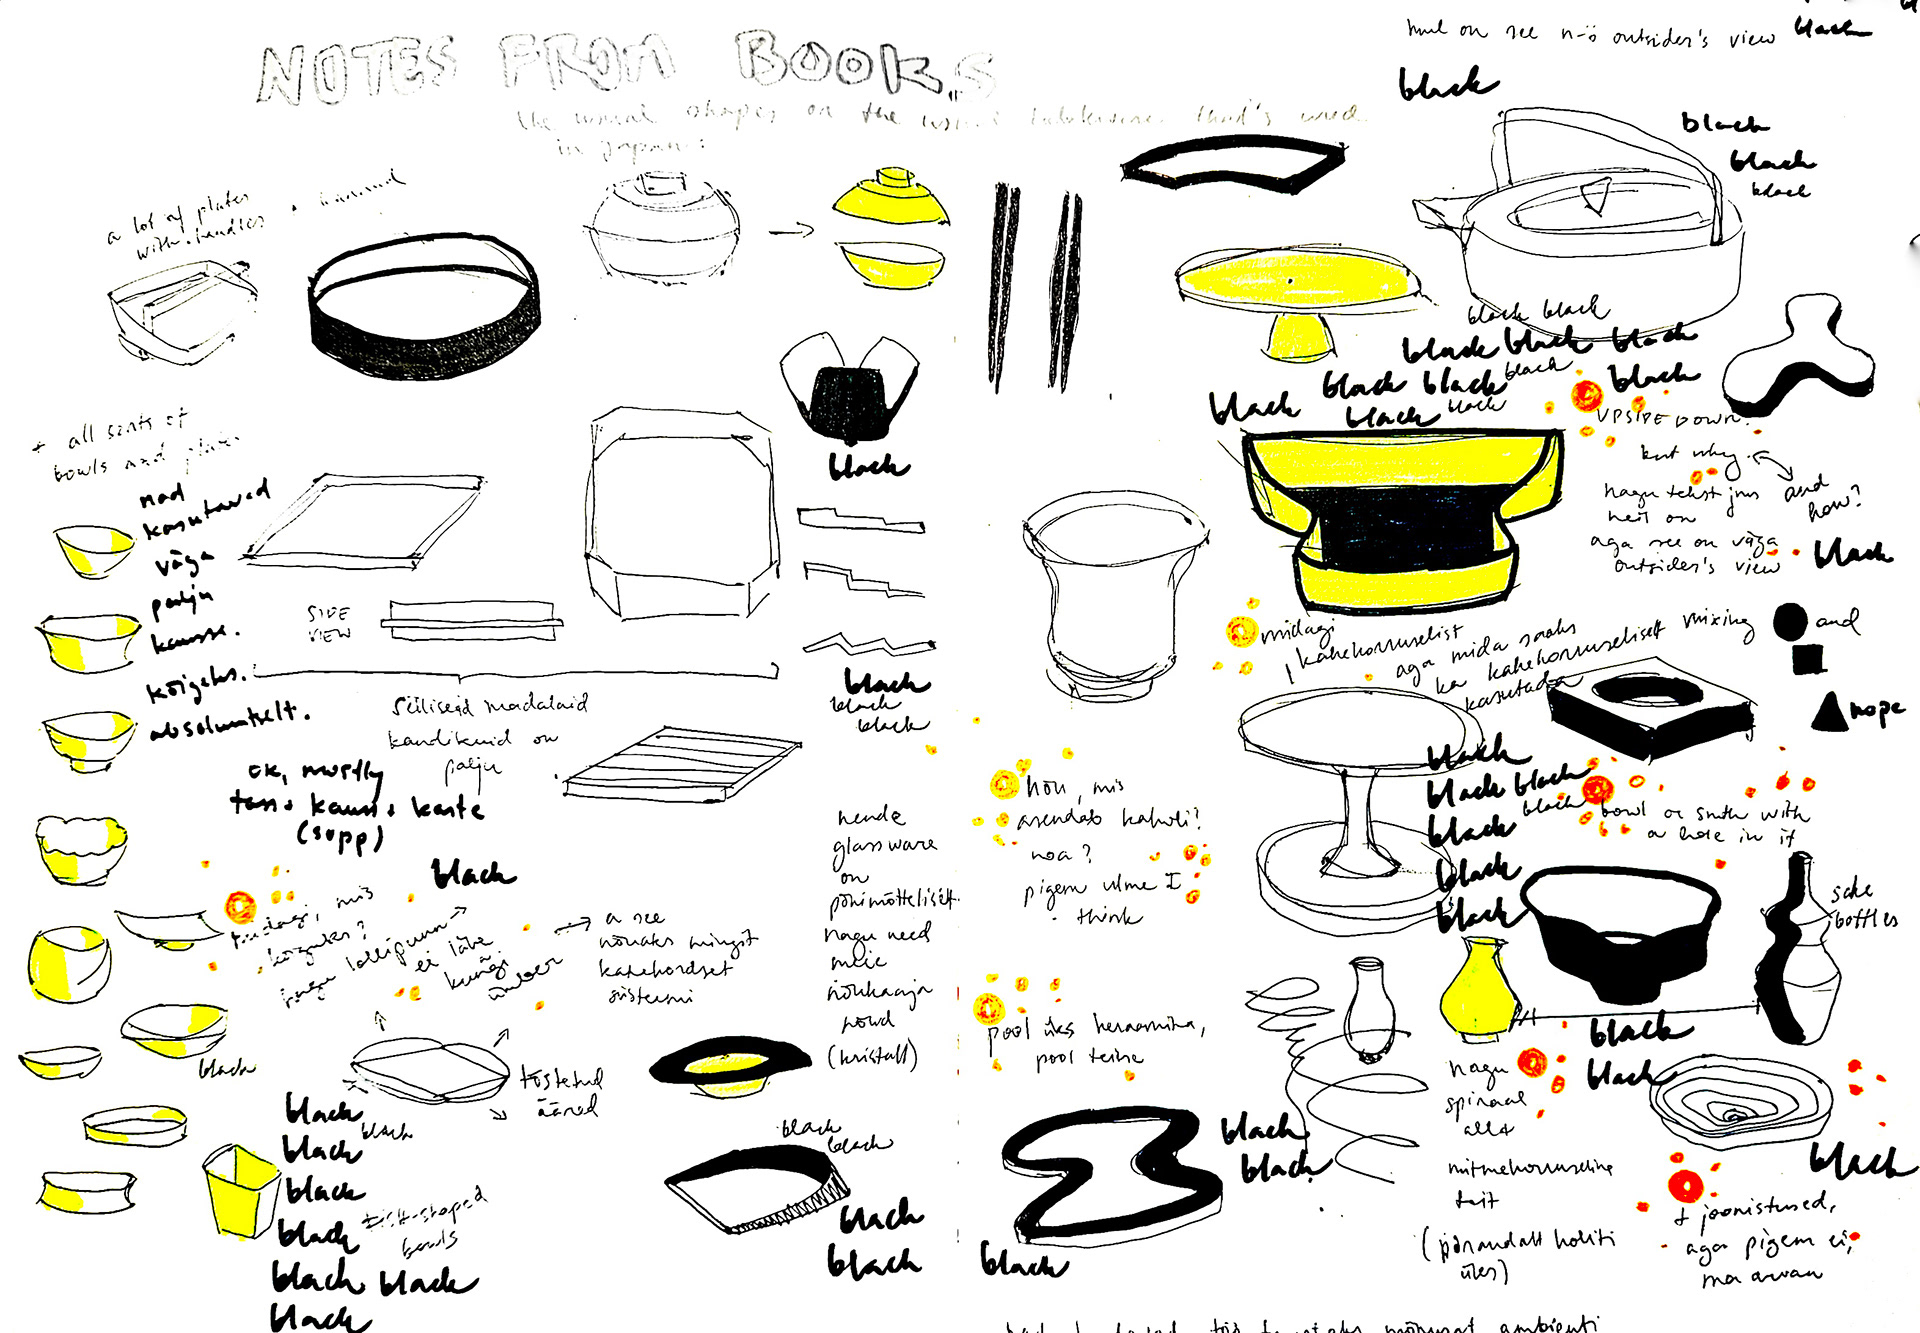 NOTES FROM BOOKS
the usual shapes on the tableware that's used
in Japan:
a lot of plates
with handles
+ all sorts of
bowls and plates
nad
kasutavad
väga
palju
kausse.
kõigeks.
absoluutselt.
SIDE
VIEW
selliseid madalaid
kandikuid on
palju
ok, mostly
tass + kauss + kaste
(supp)
black
midagi, mis
kõiguks?
nagu lollipunn
ei lähe
kunagi
ümber
a see
nõuaks mingit
kahekordset
süsteemi
black
tõstetud
ääred
black
black
black
black
black
black
black black
black
fish-shaped
bowls
black
black
black
black
black
nende
glassware
on
põhimõtteliselt
nagu need
meie
nõukaaja
nõud
(kristall)
black
black
black
mul on see n-ö outsider's view
black
black
black
black
black
black black
black black black
black
black black
black
black
black black
UPSIDE DOWN?
but why
and
how?
nagu tekst jms
neil on
aga see on väga
outsider's view
black
midagi
kahekorruselist
aga mida saaks
ka kahekorruseliselt
kasutada
mixing
and
nope
hõu, mis
asendab kahvli?
noa?
pigem ulme I
think
black
black black
black
black
black
black
bowl or smth with
a hole in it
sake
bottles
pool üks keraamika,
pool teine
black
black
black
black
black
nagu
spiraal
alla
mitmekorruseline
(põrandalt kohiti
üles)
black
+ joonistused,
aga pigem ei,
ma arvan